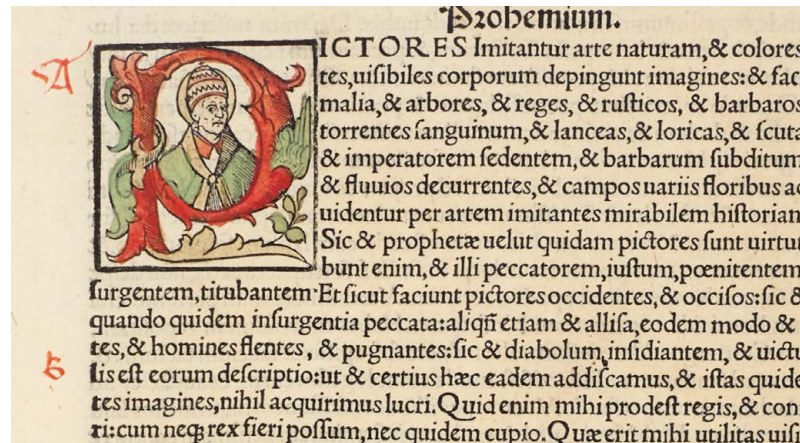 Prohemium.
A
PICTORES Imitantur arte naturam,& colores
tes,uiſibiles corporum depingunt imagines:& fac
malia,& arbores, & reges, & ruſticos, & barbaros
torrentes ſanguinum,& lanceas,& loricas,& ſcuta
& imperatorem ſedentem,& barbarum ſubditum
& fluuios decurrentes,& campos uariis floribus ac
uidentur per artem imitantes mirabilem hiſtoriam
Sic & prophetæ uelut quidam pictores ſunt uirtu
bunt enim,& illi peccatorem,iuſtum,pœnitentem
ſurgentem,titubantem·Et ſicut faciunt pictores occidentes,& occiſos:ſic &
quando quidem inſurgentia peccata:aliqñ etiam & alliſa,eodem modo &
tes,& homines flentes, & pugnantes:ſic & diabolum,inſidiantem, & uictu
B
lis eſt eorum deſcriptio:ut & certius hæc eadem addiſcamus,& iſtas quide
tes imagines,nihil acquirimus lucri.Quid enim mihi prodeſt regis,& con
ri:cum neqꝫ rex fieri poſſum,nec quidem cupio.Quæ erit mihi utilitas uiſi